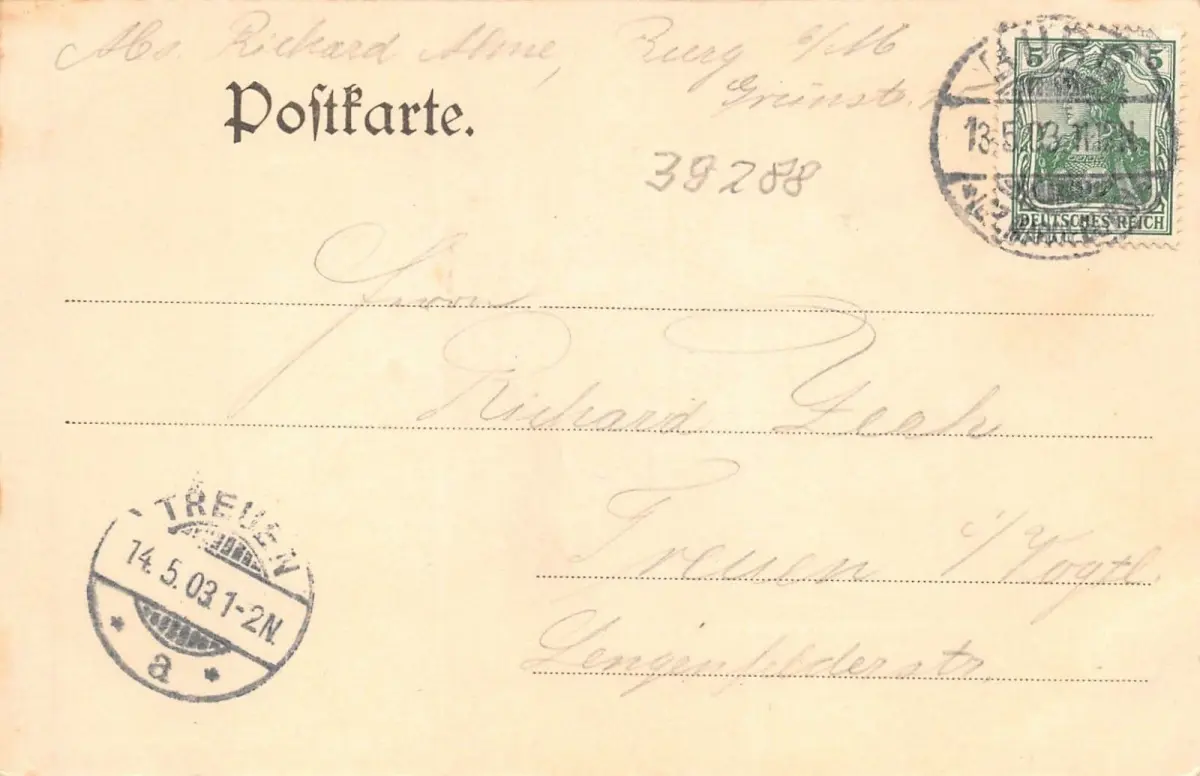 Abs. Richard Ahne, Burg b/M
Grünstr. 1
Postkarte.
5 5
13.5.03 11-12N
DEUTSCHES REICH
39288
Herrn
Richard
Treuen i/Vogtl.
Lengenfelderstr.
TREUEN
14.5.03.1-2N.
* a *